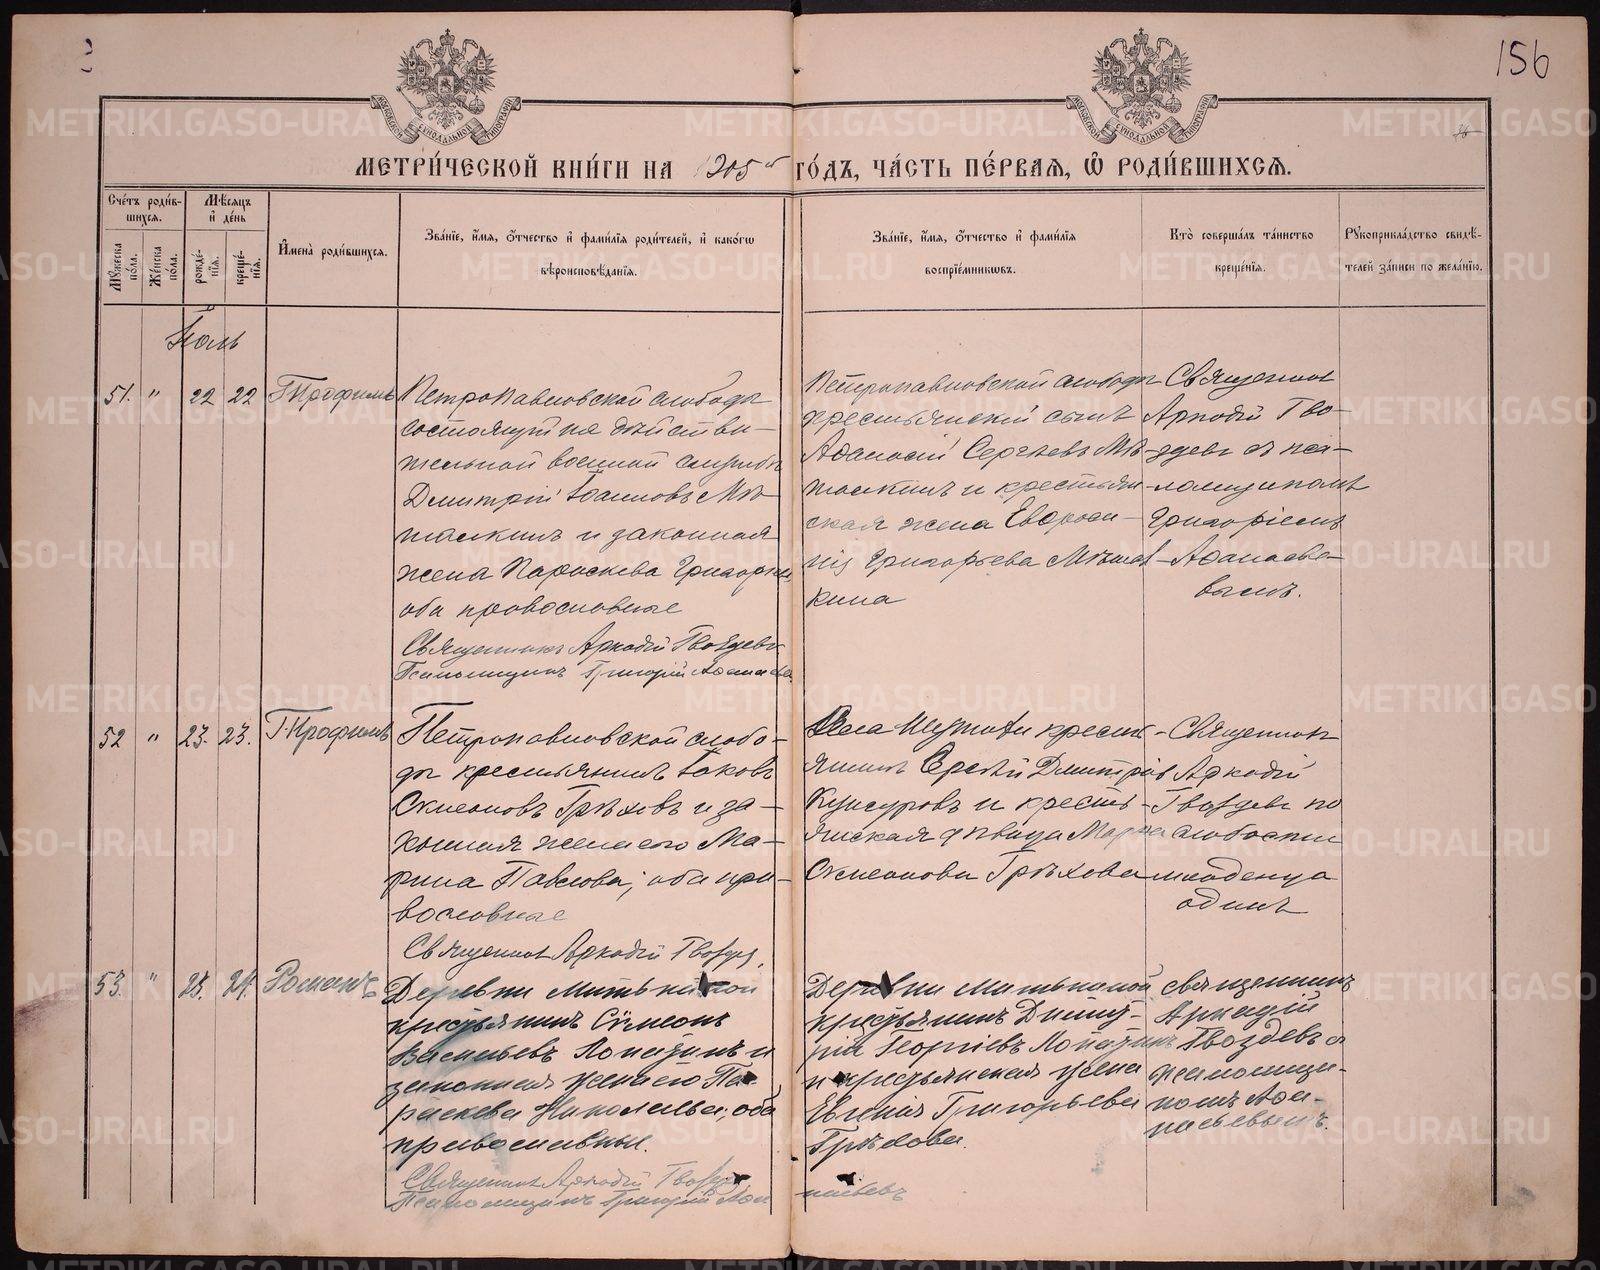 156
МЕТРИ́ЧЕСКОЙ КНИ́ГИ НА 1905 ГО́ДЪ, ЧА́СТЬ ПЕ́РВАЯ, Ѡ РОДИ́ВШИХСѦ.
Сче́тъ роди́в-
шихся.
Мѣ́сяцъ
и҆ де́нь
Мꙋ́жеска по́ла.
Же́нска по́ла.
рожде́-
нїѧ.
креще́-
нїѧ.
И҆мена̀ роди́вшихся.
Зва́нїе, и҆́мя, ѻ҆́тчество и҆ фами́лїя роди́телей, и҆ како́гѡ
вѣроисповѣ́данїя.
Зва́нїе, и҆́мя, ѻ҆́тчество и҆ фами́лїя
воспрїе́мникѡвъ.
Кто̀ соверша́лъ та́инство
креще́нїя.
Рꙋкоприкла́дство свидѣ́-
телей за́писи по жела́нїю.
Іюль
51. " 22 22 Трофимъ
Петропавловской слободы
состоящій на дѣйстви-
тельной военной службѣ
Дмитрій Іоанновъ
и законная
жена Параскева Григорьева
оба православные
Священникъ Аркадій Гвоздевъ
Псаломщикъ Григорій Аѳанасьев
Петропавловской слободы
крестьянскій сынъ
Аѳанасій Сергѣевъ
и крестьян-
ская жена Евфроси-
нія Григорьева
кина
Священник
Аркадій Гво-
здевъ съ пса-
ломщикомъ
Григоріемъ
Аѳанасье-
вымъ.
52 " 23. 23. Трофимъ
Петропавловской слобо-
ды крестьянинъ Іаковъ
Грѣховъ и за-
конная жена его Ма-
рина Павлова; оба пра-
вославные
Священник Аркадій Гвоздев
Села крестья-
янинъ Сергѣй Дмитріев
и кресть-
янская дѣвица Марѳа
Грѣхова
Священник
Аркадій
Гвоздевъ по
слабости
младенца
одинъ
53. " 23. 24. Романъ
Деревни Митькиной
крестьянинъ Сѵмеонъ
Васильевъ Лопатинъ и
законная жена его Па-
раскева Николаева; оба
православные.
Священник Аркадій Гвоздев
Псаломщикъ Григорій Аѳа
насьевъ
Деревни Митькиной
крестьянинъ Дмит-
рій Георгіевъ Лопатинъ
и крестьянская жена
Евгенія Григорьева
Грѣхова.
священникъ
Аркадій
Гвоздевъ съ
псаломщи-
комъ Аѳа-
насьевымъ.
METRIKI.GASO-URAL.RU